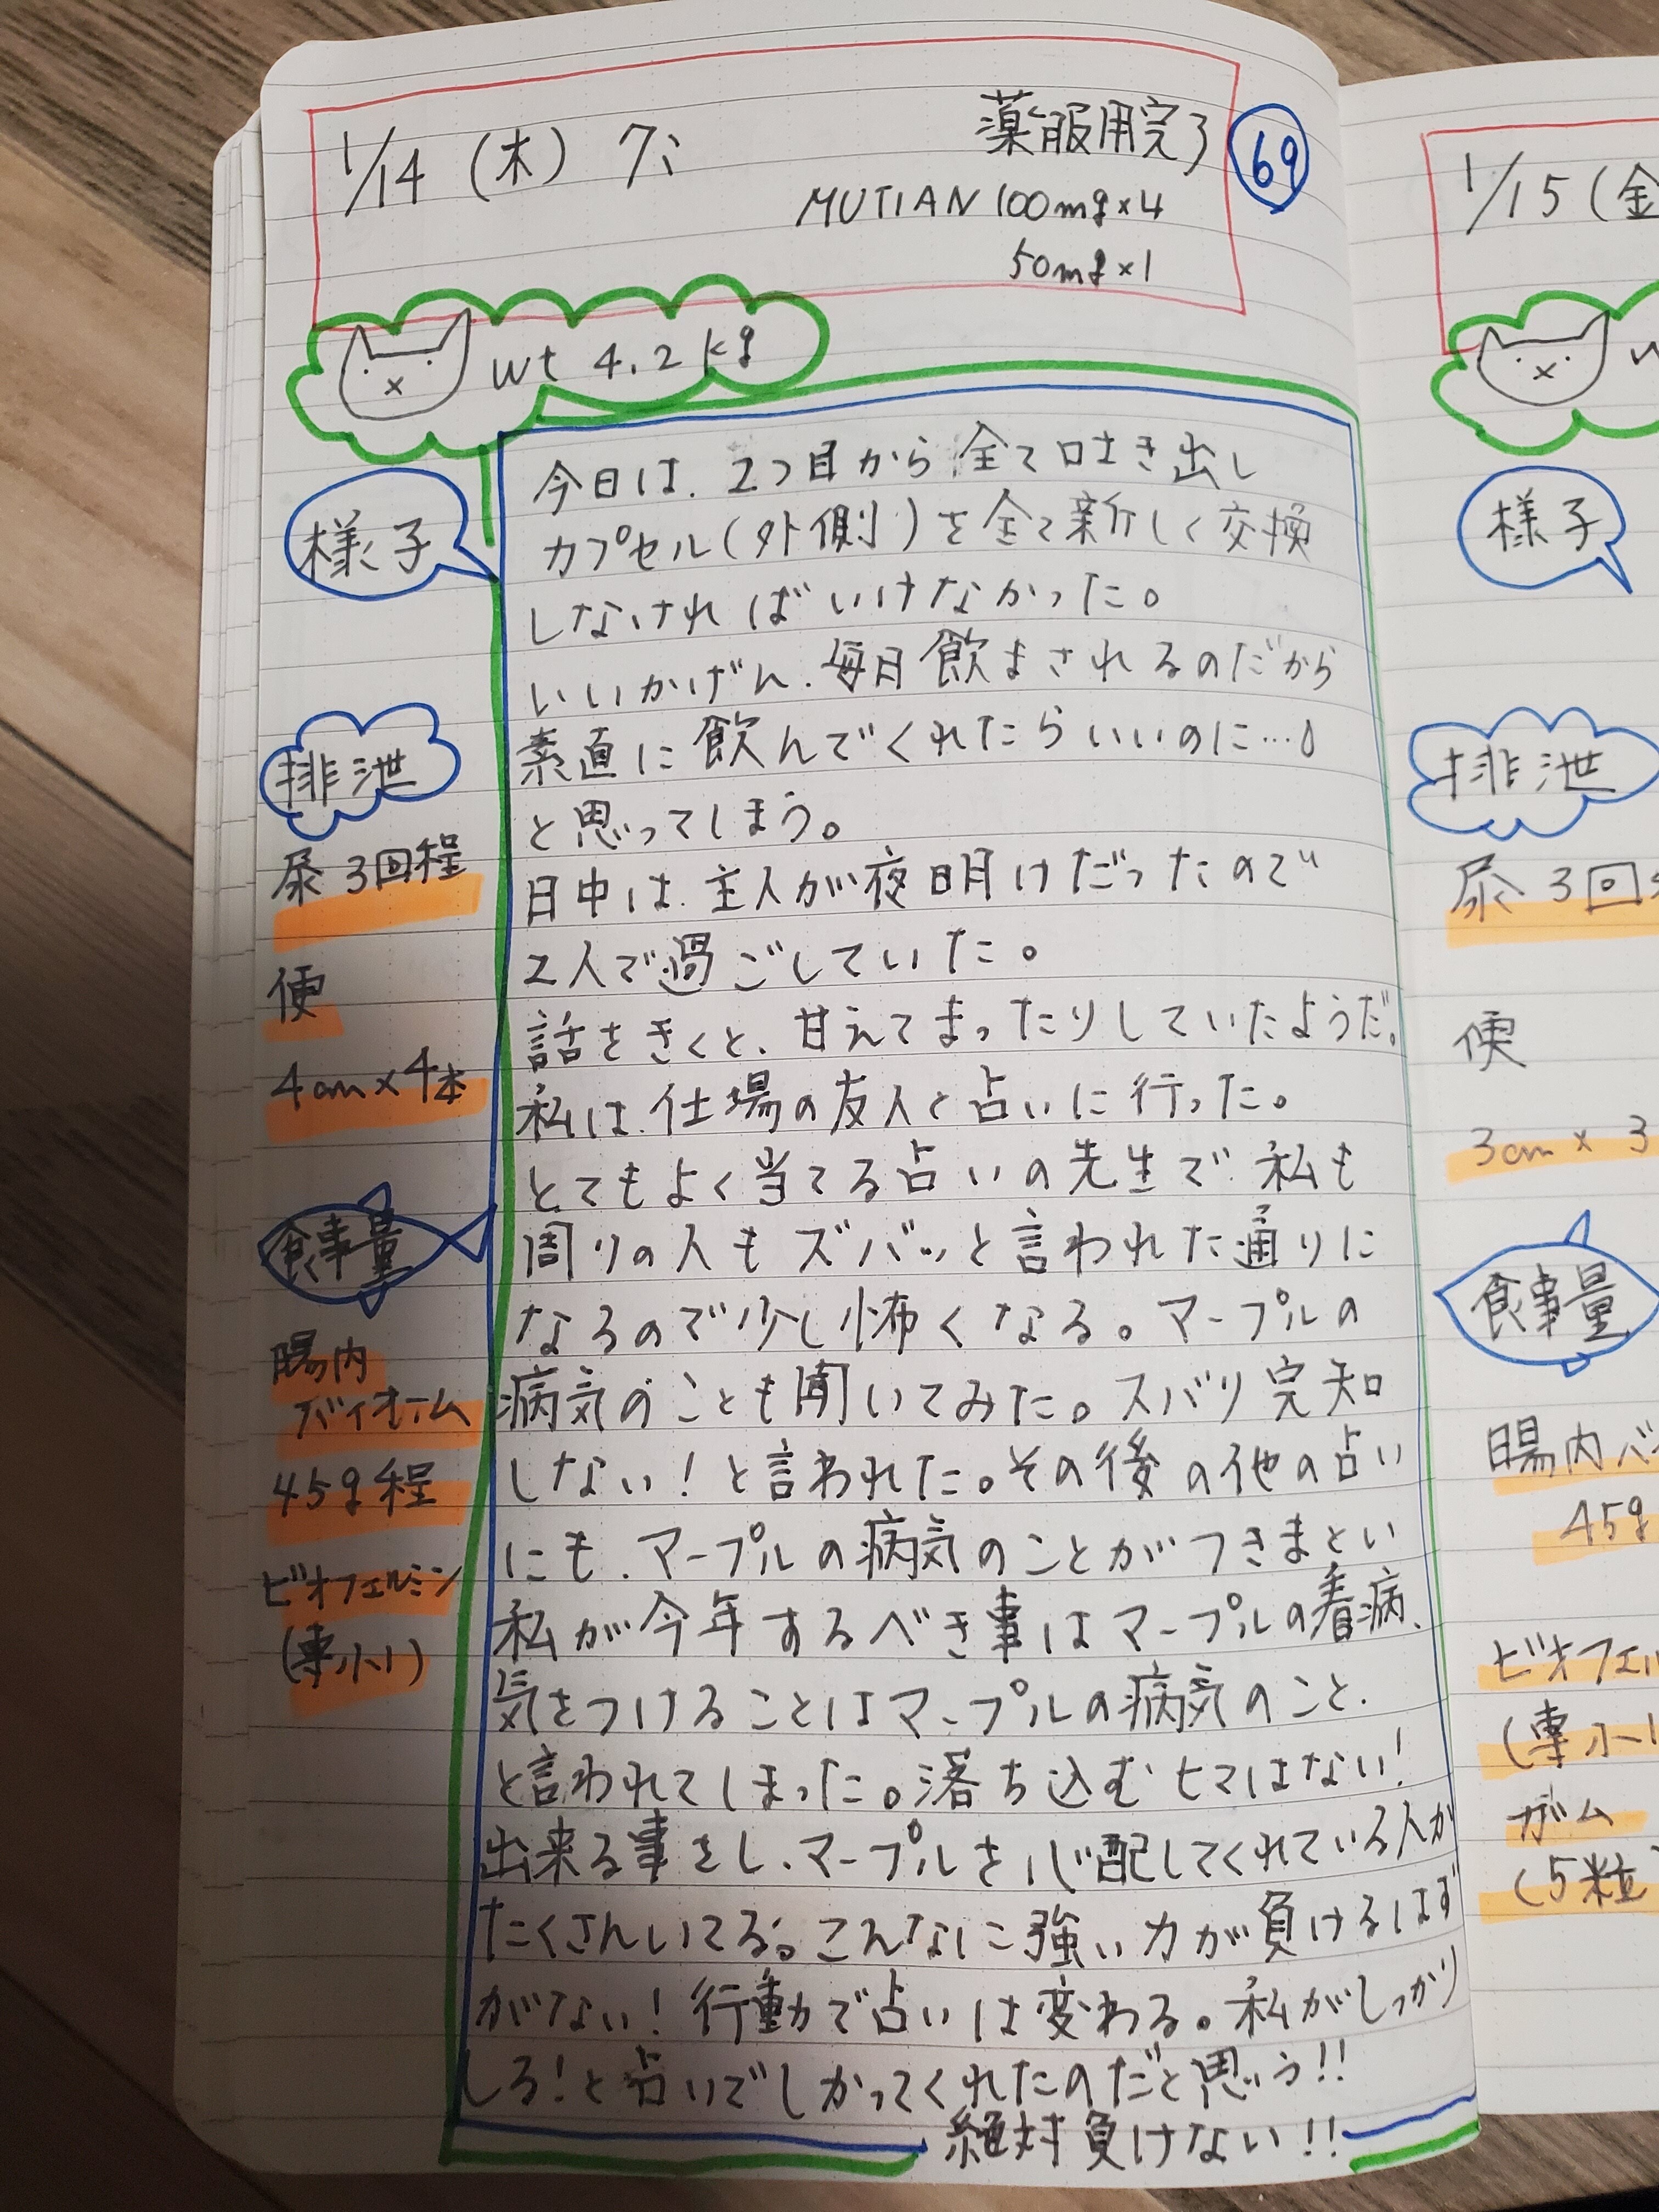 1/14 (木) 7:
薬服用完了
69
MUTIAN 100mg×4
50mg×1
wt 4.2kg
様子
今日は、2つ目から全て吐き出し
カプセル(外側)を全て新しく交換
しなければいけなかった。
いいかげん、毎日飲まされるのだから
素直に飲んでくれたらいいのに…。
と思ってしまう。
日中は、主人が夜明けだったので
2人で過ごしていた。
話をきくと、甘えてまったりしていたようだ。
私は、仕場の友人と占いに行った。
とてもよく当てる占いの先生で、私も
周りの人もズバッと言われた通りに
なるので少し怖くなる。マープルの
病気のことも聞いてみた。スバリ完知
しない!と言われた。その後の他の占い
にも、マープルの病気のことがつきまとい
私が今年するべき事はマープルの看病、
気をつけることはマープルの病気のこと、
と言われてしまった。落ち込むヒマはない!
出来る事をし、マープルを心配してくれている人が
たくさんいてる。こんなに強い力が負けるはず
がない!行動で占いは変わる。私がしっかり
しろ!と占いでしかってくれたのだと思う!!
絶対負けない!!
排泄
尿 3回程
便
4cm×4本
食事量
腸内
バイオーム
45g程
ビオフェルミン
(専小1)
1/15 (金
様子
排泄
尿 3回
便
3cm × 3
食事量
腸内バ
45g
ビオフェル
(専小1
ガム
(5粒